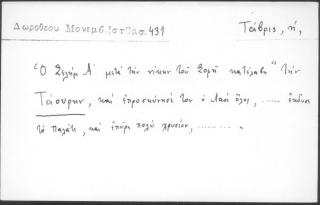 Δωροθεου Μονεμβ. Ιστ Θασ. 431
Τάβρις, ἡ,
"Ὁ Σελὴμ Α' μετὰ τὴν νίκην τοῦ Σοφῆ κατέλαβε" τὴν
Τάουρην, καὶ ἐπροσκύνησέ τον ὁ λαὸς ὅλος, ......
τὸ παλάτι, καὶ ἐπῆρε πολὺ χρυσίον, ......... "